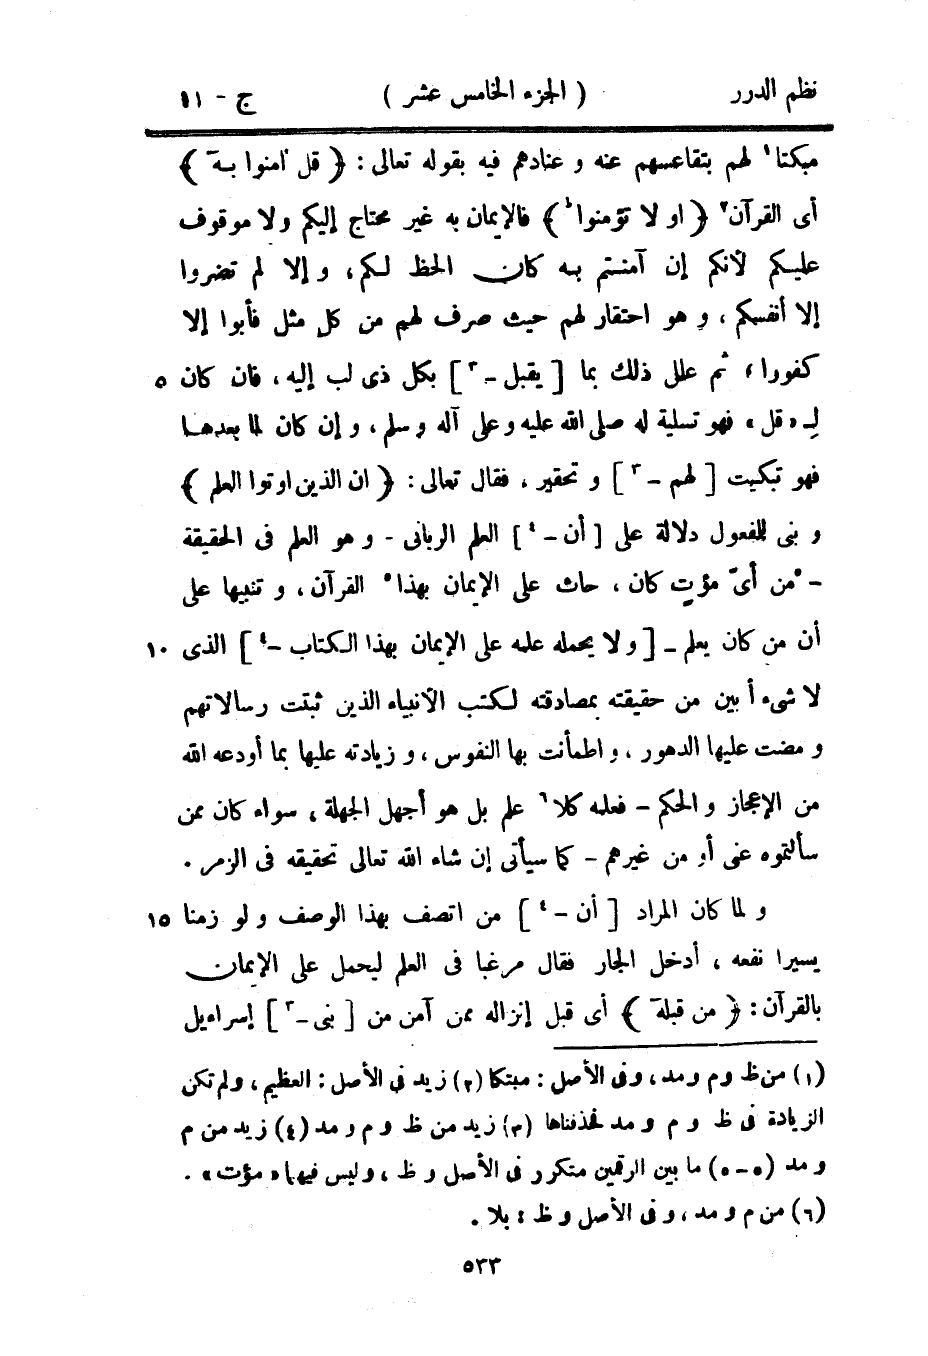 نظم الدرر ( الجزء الخامس عشر ) ج - ١١
مبكتا١ لهم بتقاعسهم عنه و عنادهم فيه بقوله تعالى : ﴿ قل اٰمنوا بهۤ ﴾
أى القرآن٢ ﴿ او لا تؤمنوا ؕ ﴾ فالإيمان به غير محتاج إليكم ولا موقوف
عليكم لأنكم إن آمنتم به كان الحظ لكم، و إلا لم تضروا
إلا أنفسكم ، و هو احتقار لهم حيث صرف لهم من كل مثل فأبوا إلا
كفورا، ثم علل ذلك بما [ يقبل -٣ ] بكل ذى لب إليه ، فان كان ٥
لِـ «قل» فهو تسلية له صلى الله عليه و على آله و سلم ، و إن كان لما بعدها
فهو تبكيت [ لهم -٣ ] و تحقير ، فقال تعالى : ﴿ ان الذين اوتوا العلم ﴾
و بنى للفعول دلالة على [ أن -٤ ] العلم الربانى - و هو العلم فى الحقيقة
- ٥من أىّ مؤتٍ كان ، حاث على الإيمان بهذا٥ القرآن ، و تنبيها على
أن من كان يعلم - [ و لا يحمله علمه على الإيمان بهذا الكتاب -٤ ] الذى ١٠
لا شىء أبين من حقيقته بمصادقته لكتب الأنبياء الذين ثبتت رسالاتهم
و مضت عليها الدهور ، و اطمأنت بها النفوس ، و زيادته عليها بما أودعه الله
من الإعجاز و الحكم - فعلمه كلا٦ علم بل هو أجهل الجهلة ، سواء كان ممن
سألتموه عنى أو من غيرهم - كما سيأتى إن شاء الله تعالى تحقيقه فى الزمر .
و لما كان المراد [ أن -٤ ] من اتصف بهذا الوصف و لو زمنا ١٥
يسيرا نفعه ، أدخل الجار فقال مرغبا فى العلم ليحمل على الإيمان
بالقرآن : ﴿ من قبلهۤ ﴾ أى قبل إنزاله ممن آمن من [ بنى -٣ ] إسراءيل
(١) من ظ و م و مد ، و فى الأصل : مبتكا (٢) زيد فى الأصل : العظيم ، و لم تكن
الزيادة فى ظ و م و مد فحذفناها (٣) زيد من ظ و م و مد (٤) زيد من م
و مد (٥-٥) ما بين الرقمين متكرر فى الأصل و ظ ، و ليس فيها « مؤت » .
(٦) من م و مد ، و فى الأصل و ظ : بلا .
٥٣٣